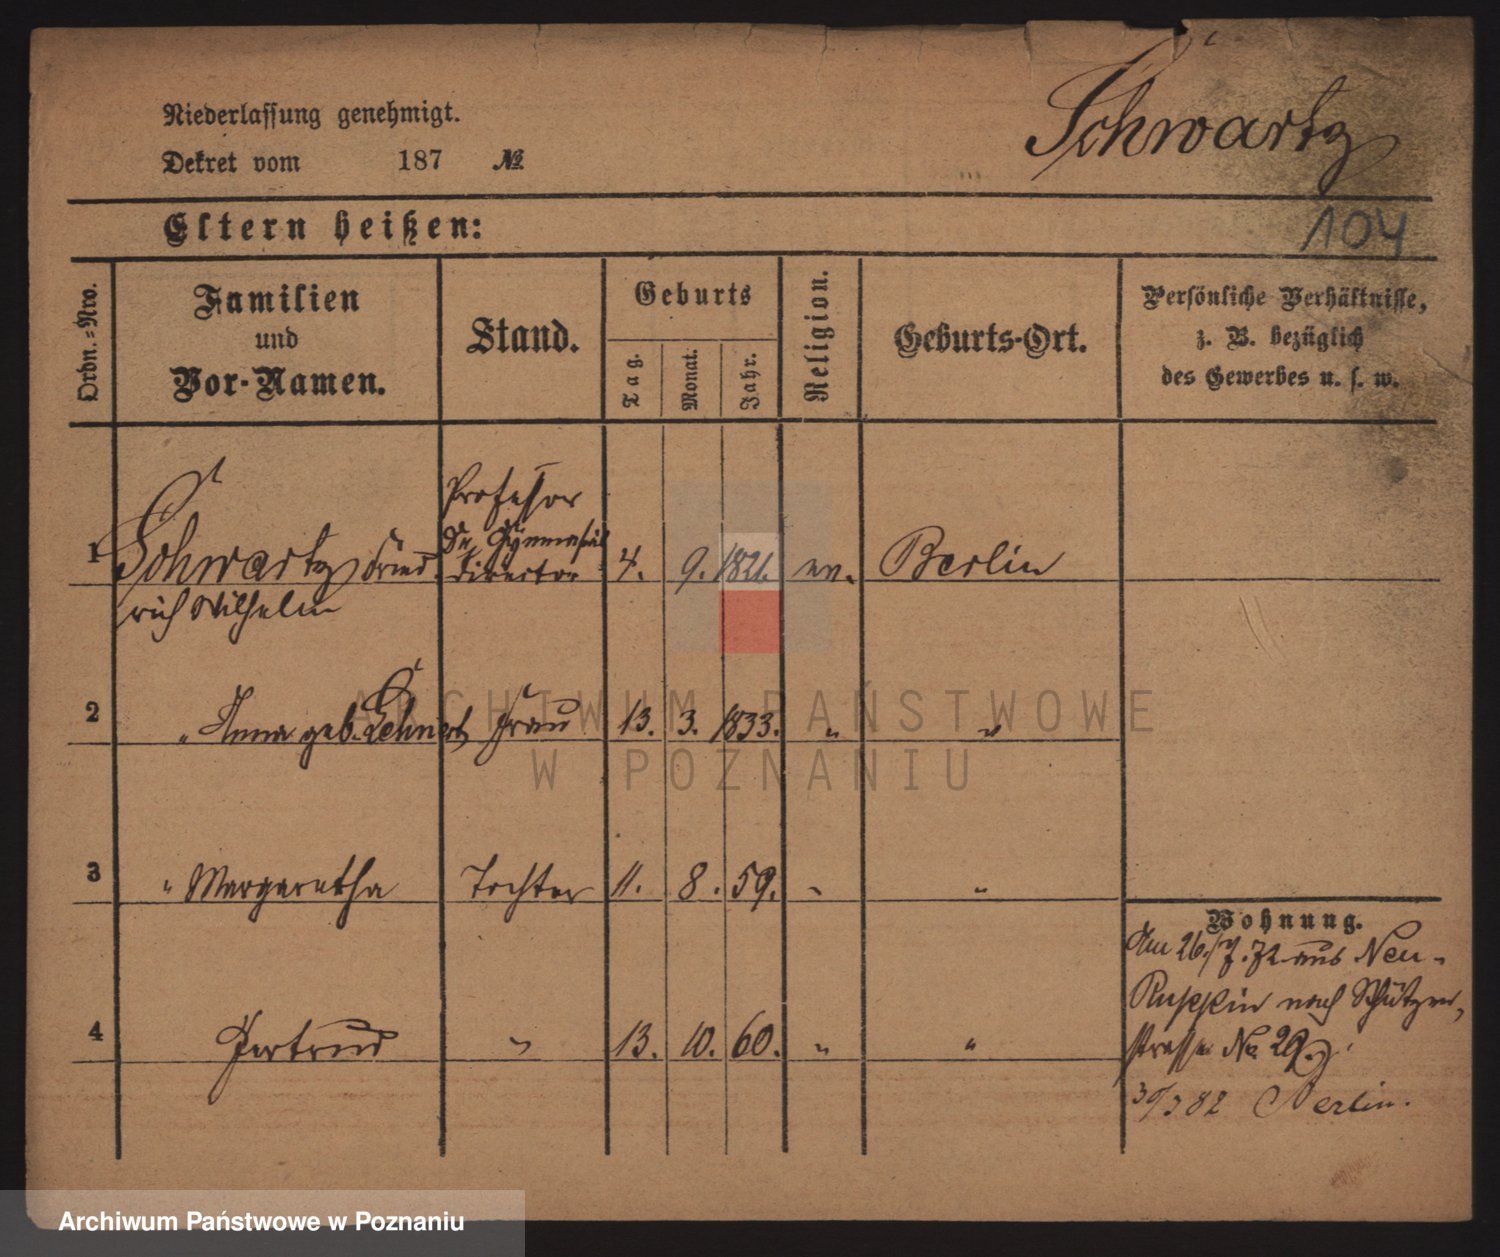 Schwartz
Niederlassung genehmigt.
Dekret vom 187 №
104
Eltern heißen:
Ordn.=Nro.
Familien
und
Vor-Namen.
Stand.
Geburts
Tag.
Monat.
Jahr.
Religion.
Geburts-Ort.
Persönliche Verhältnisse,
z. B. bezüglich
des Gewerbes u. s. w.
Professor
Dr. Gymnasial
1 Schwartz Fried- Director 4. 9. 1821. ev. Berlin
rich Wilhelm
2 " Anna geb. Lehnert Frau 13. 3. 1833. " "
3 " Margaretha Tochter 11. 8. 59. " "
Wohnung.
Am 26./7. 72 aus Neu-
Ruppin nach Schützen-
4 Gertrud " 13. 10. 60. " "
strasse No 29.
30/3 82 Berlin.
ARCHIWUM PAŃSTWOWE
W POZNANIU
Archiwum Państwowe w Poznaniu